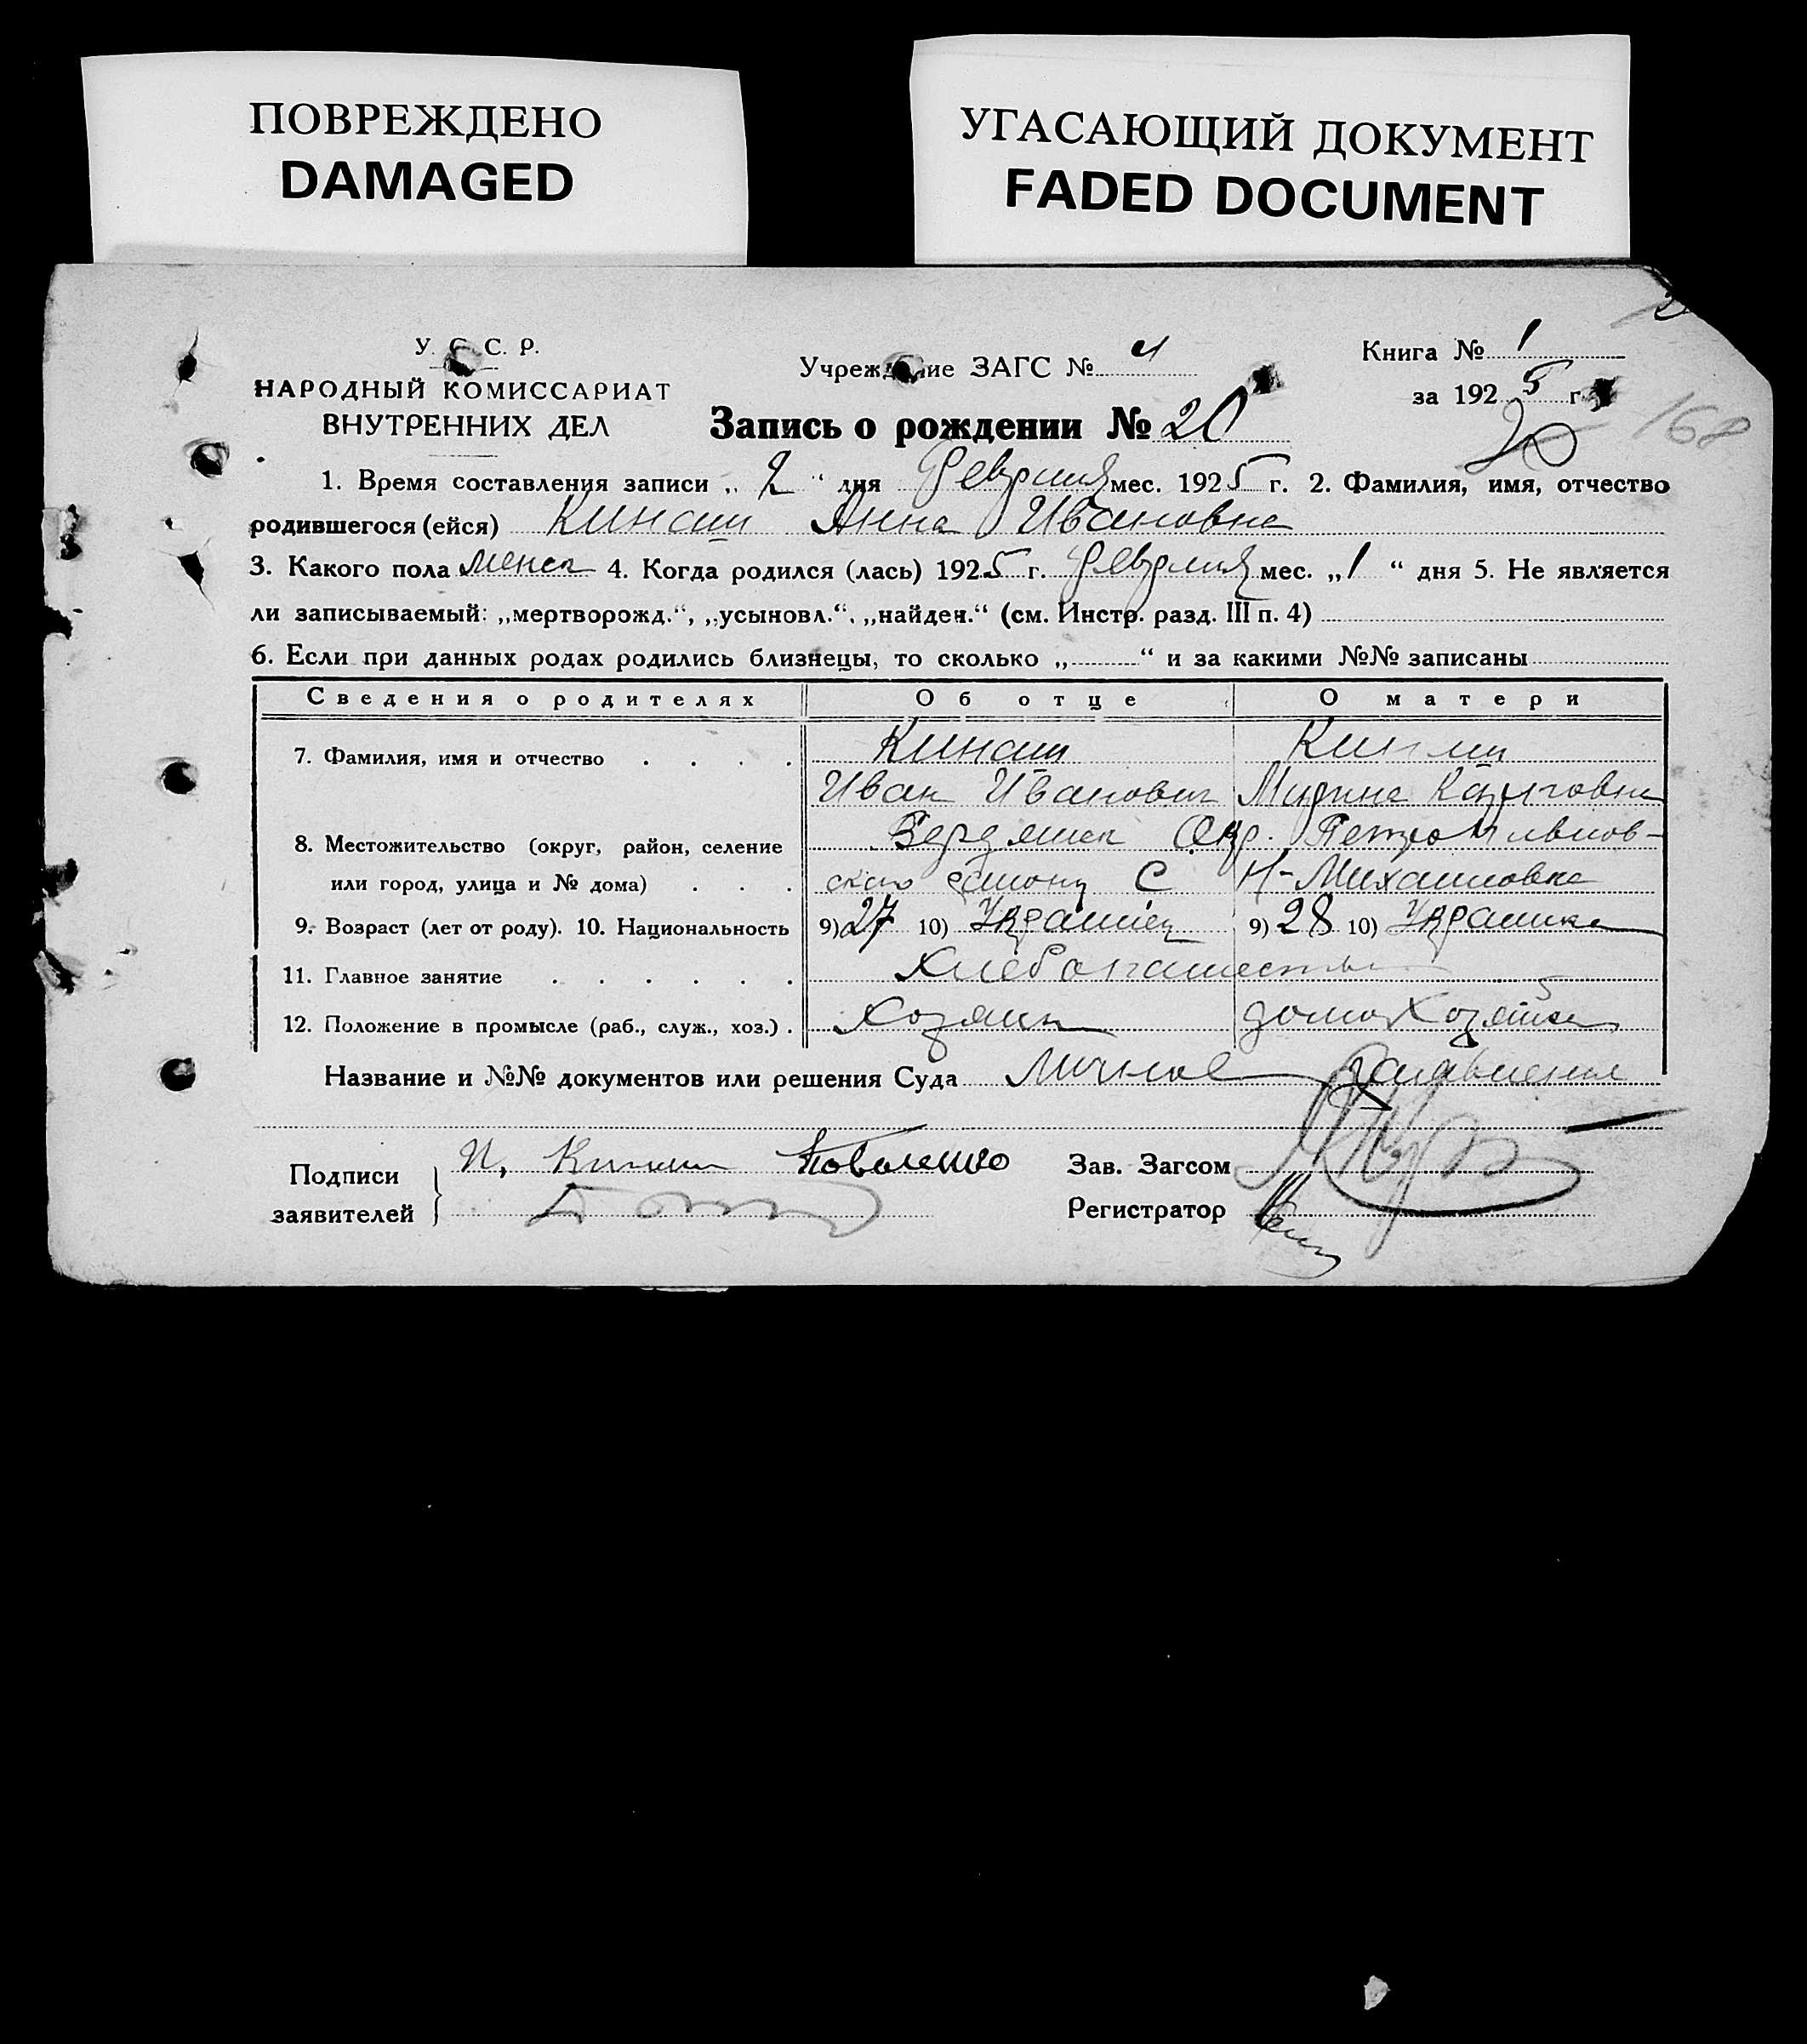 ПОВРЕЖДЕНО
DAMAGED
УГАСАЮЩИЙ ДОКУМЕНТ
FADED DOCUMENT
У. С. С. Р.
НАРОДНЫЙ КОМИССАРИАТ
ВНУТРЕННИХ ДЕЛ
Учреждение ЗАГС №
Книга № 1
за 1925 г.
Запись о рождении № 20
20
168
1. Время составления записи „ 2 “ дня февраля мес. 1925 г. 2. Фамилия, имя, отчество
родившегося (ейся) Кинаш Анна Ивановна
3. Какого пола женск 4. Когда родился (лась) 1925 г. февраля мес. „1 “ дня 5. Не является
ли записываемый: „мертворожд.“, „усыновл.“, „найден.“ (см. Инстр. разд. III п. 4)
6. Если при данных родах родились близнецы, то сколько „ “ и за какими №№ записаны
Сведения о родителях Об отце О матери
7. Фамилия, имя и отчество Кинаш Кинаш
Иван Иванович Марина Карповна
8. Местожительство (округ, район, селение Бердянск Окр. Петропавлов-
или город, улица и № дома) ского району С Н-Михайловка
9. Возраст (лет от роду). 10. Национальность 9) 27 10) Украинец 9) 28 10) Украинка
11. Главное занятие Хлебопашество
12. Положение в промысле (раб., служ., хоз.) Хозяин домохозяйка
Название и №№ документов или решения Суда Личное заявление
Подписи
заявителей
И. Кинаш Коваленко
Зав. Загсом
Регистратор